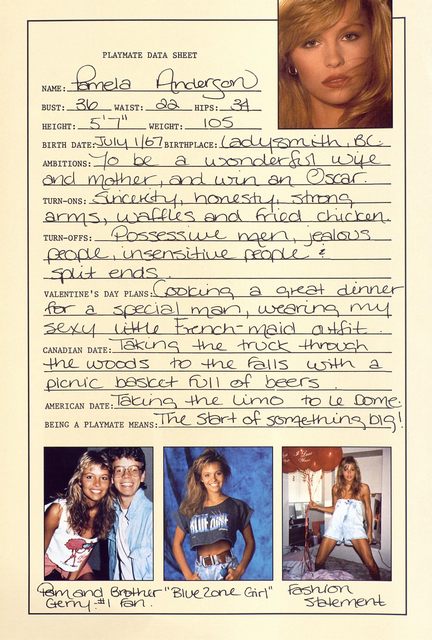 PLAYMATE DATA SHEET
NAME: Pamela Anderson
BUST: 36 WAIST: 22 HIPS: 34
HEIGHT: 5'7" WEIGHT: 105
BIRTH DATE: July 1/67 BIRTHPLACE: Ladysmith, BC.
AMBITIONS: To be a wonderful wife
and mother, and win an Oscar.
TURN-ONS: Sincerity, honesty, strong
arms, waffles and fried chicken.
TURN-OFFS: Possessive men, jealous
people, insensitive people &
split ends.
VALENTINE'S DAY PLANS: Cooking a great dinner
for a special man, wearing my
sexy little French-maid outfit.
CANADIAN DATE: Taking the truck through
the woods to the falls with a
picnic basket full of beers.
AMERICAN DATE: Taking the limo to Le Dome.
BEING A PLAYMATE MEANS: The start of something big!
BLUE ZONE
Pam and Brother
Gerry-#1 Fan.
"Blue Zone Girl"
Fashion
Statement